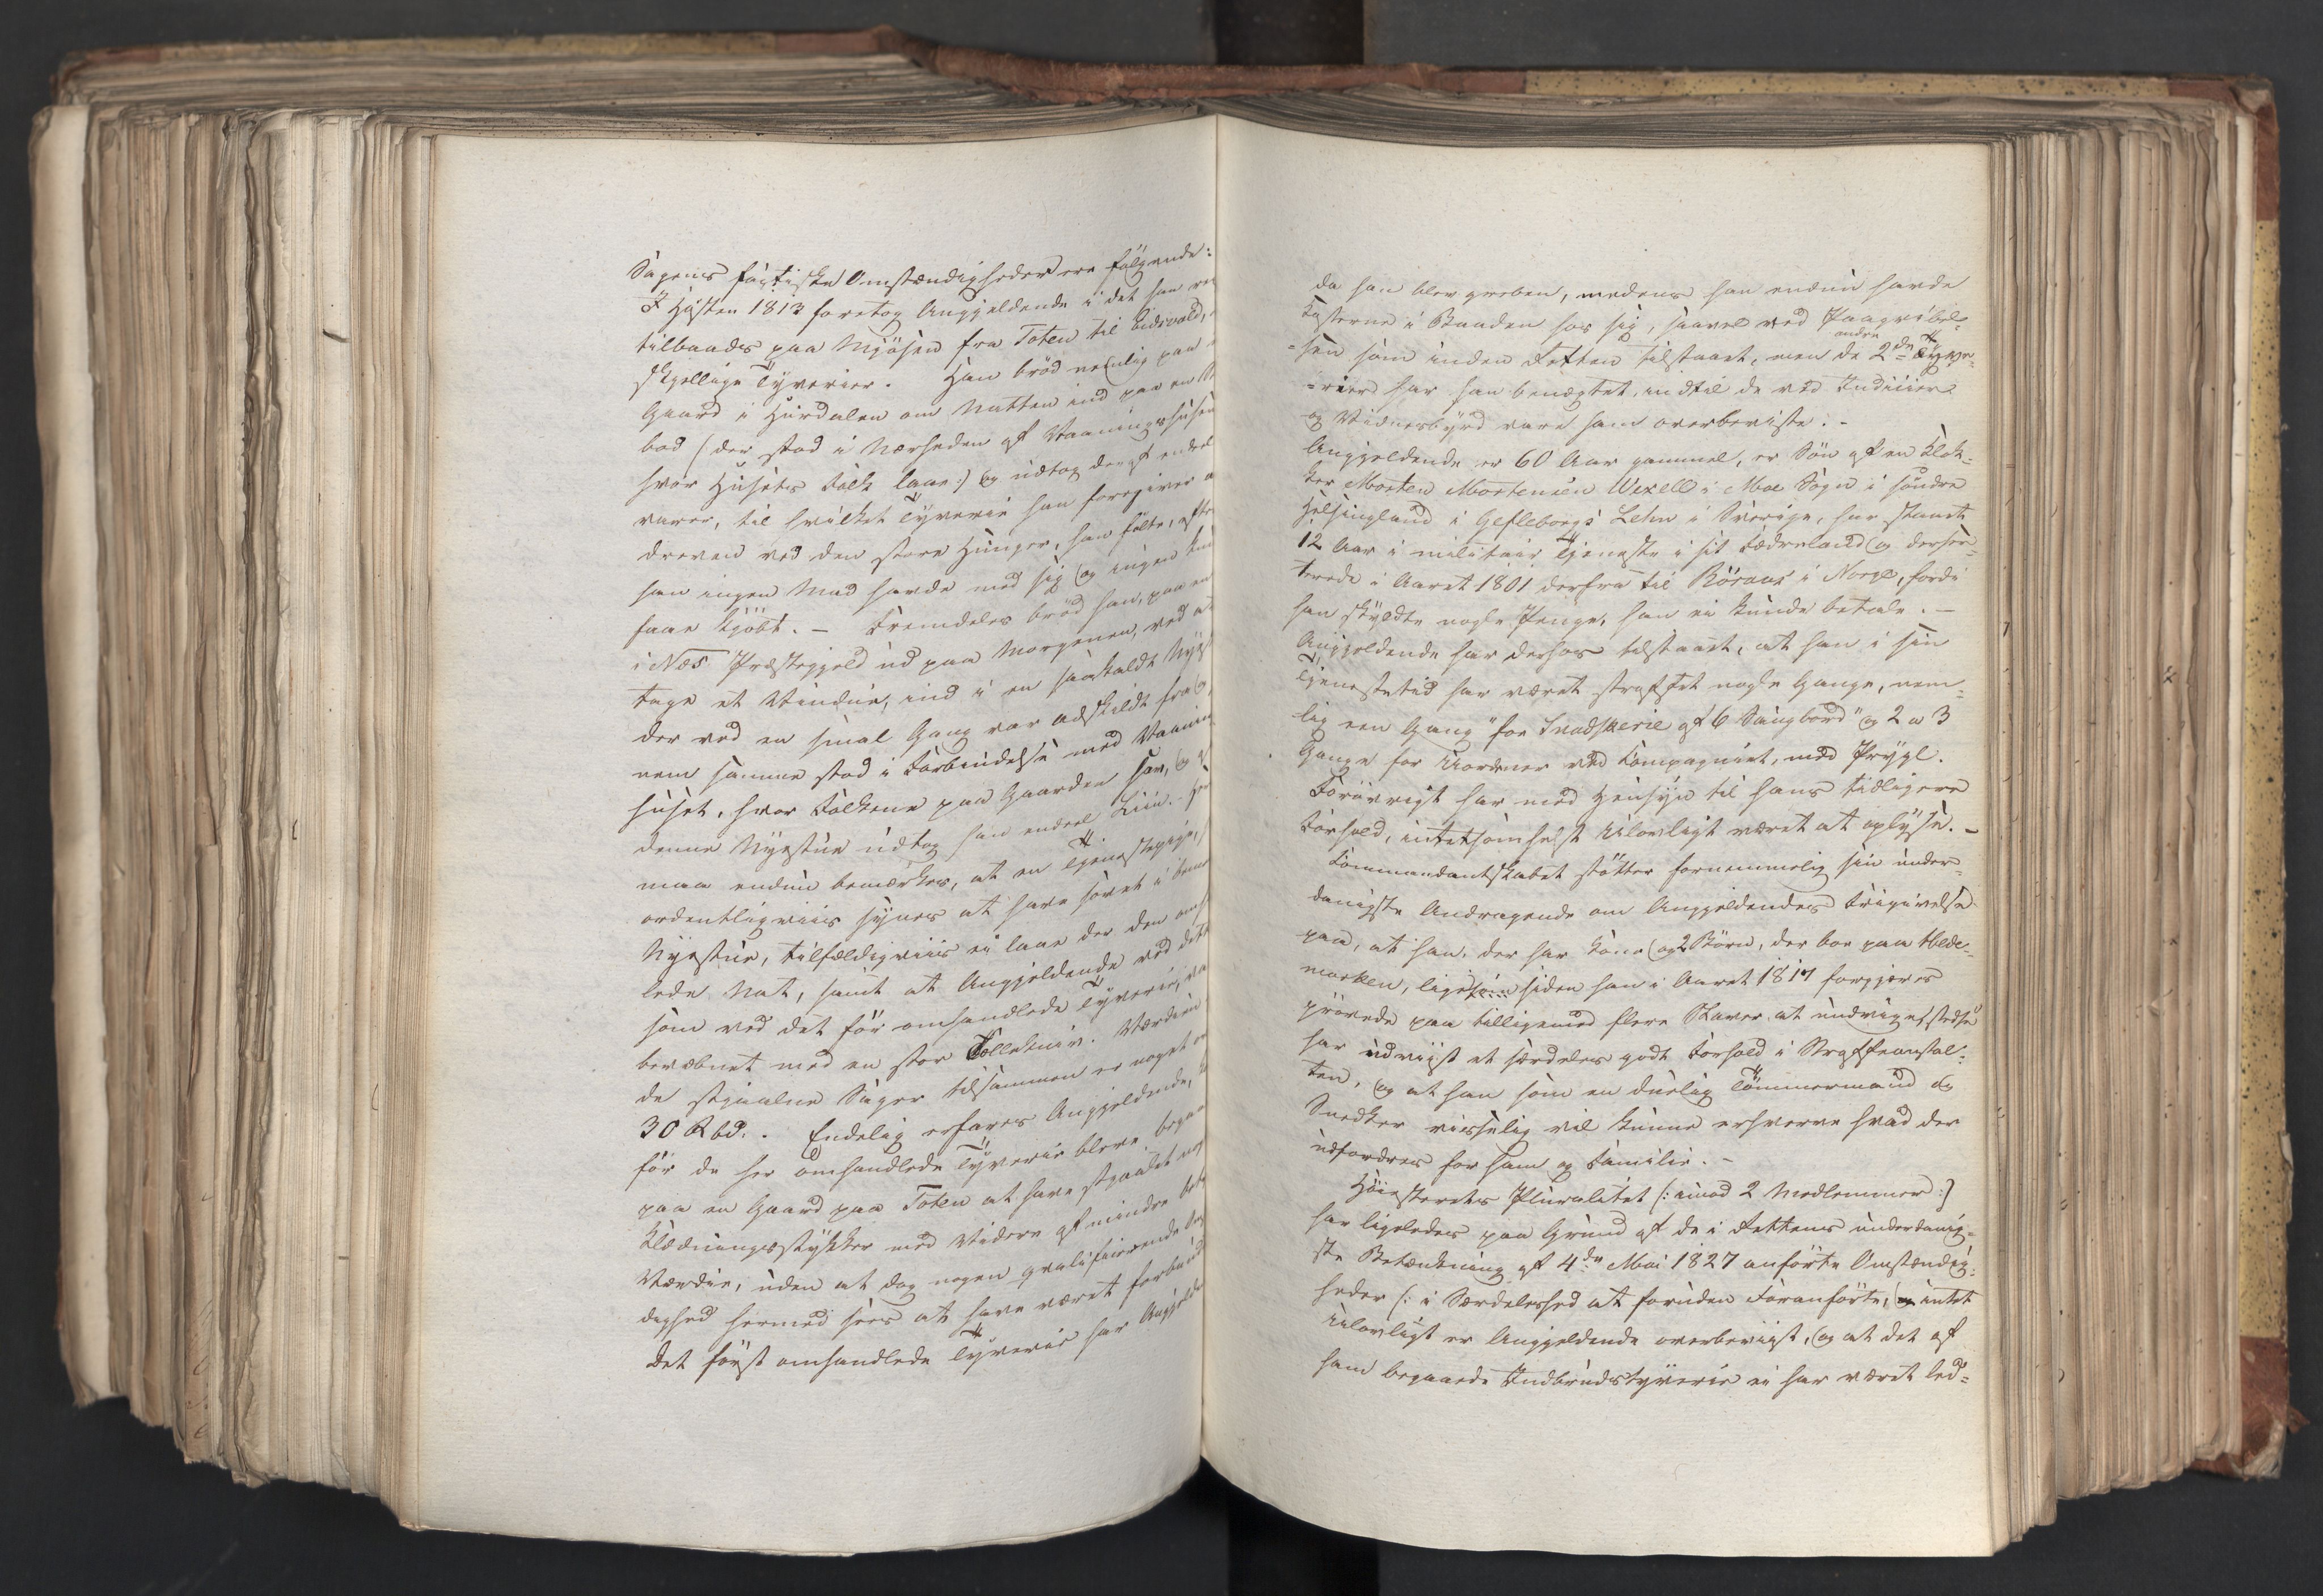 Sagens factiske Omstændigheder ere følgende:
I Høsten 1813 foretog Angjeldende i det han
tilbaads paa Mjøsen fra Toten til Eidsvold,
skjellige Tyverier. Han brød nemlig paa
Gaard i Hurdalen om Natten ind paa en
bod (der stod i Nærheden af Vaaningshuset
hvor Husets Folk laae:) og udtog deraf endeel
varer, til hvilket Tyverie han foregiver
dreven ved den store Hunger, han følte,
han ingen Mad havde med sig og ingen
faae kjøbt. – Fremdeles brød han, paa en
i Næs Præstegjeld ud paa Morgenen, ved at
tage et Vindue, ind i en saakaldt
der ved en smal Gang var adskildt fra
men samme stod i Forbindelse med
huset, hvor Folkene paa Gaarden sov, og
denne Nyestue udtog han endeel Liin. –
maa endnu bemærkes, at en Tjenestepige,
ordentligviis synes at have sovet i
Nyestue, tilfældigviis ei laae der den
lede Nat, samt at Angjeldende ved
som ved det før omhandlede Tyverie, var
bevæbnet med en stor Tollekniv. Værdien
de stjaalne Sager tilsammen er noget
30 Rbd. . Endelig erfares Angjeldende,
før de her omhandlede Tyverie bleve
paa en Gaard paa Toten at have stjaalet
Klædningsstykker med Videre af mindre
Værdie, uden at dog nogen qvalifi­cerende
dighed hermed sees at have været
Det først omhandlede Tyverie har
da han blev greben, medens han endnu havde
Kosterne i Baaden hos sig, saavel ved Paagribel-
-sen som inden Retten tilstaaet, men de 2de andre Tyve-
-rier har han benægtet, indtil de ved Indicier
og Vidnesbyrd vare ham overbeviste. -
Angjeldende er 60 Aar gammel, er Søn af en Klok-
ker Morten Mortensen Wexell i Moe Sogn i søndre
Helsingland i Gefleborgs Lehn i Sverige, har staaet
12 Aar i militair Tjeneste i sit Fædreland og deser-
terede i Aaret 1801 derfra til Röraas i Norge, fordi
han skyldte nogle Penge, han ei kunde betale. —
Angjeldende har derhos tilstaaet, at han i sin
Tjenestetid har været straffet nogle Gange, nem-
lig een Gang "for Snadskerie af 6 Saugbord" og 2 a 3
Gange for Uordener ved Compagniet, med Prygl.
Forøvrigt har med Hensyn til hans tidligere
Forhold, intetsomhelst Ulovligt været at oplyse. –
Commandantskabet støtter fornemmelig sin under-
danigste Andragende om Angjeldendes Frigivelse
paa, at han, der har Kone og 2 Børn, der boe paa Hede-
marken, ligesom siden han i Aaret 1817 forgjæves
prøvede paa tilligemed flere Slaver at undvige, stedse
har udviist et særdeles godt Forhold i Straffeanstal-
ten, og at han som en duelig Tømmermand og
Snedker visselig vil kunne erhverve hvad der
udfordres for ham og Familie. –
Høiesterets Pluralitet (: imod 2 Medlemmer :)
har ligeledes paa Grund af de i Rettens underdanig-
ste Betænkning af 4de Mai 1827 anførte Omstændig-
heder (: i Særdeleshed at foruden Foranførte, intet
Ulovligt er Angjeldende overbeviist, og at det af
ham begaaede Indbrudstyverie ei har været led-